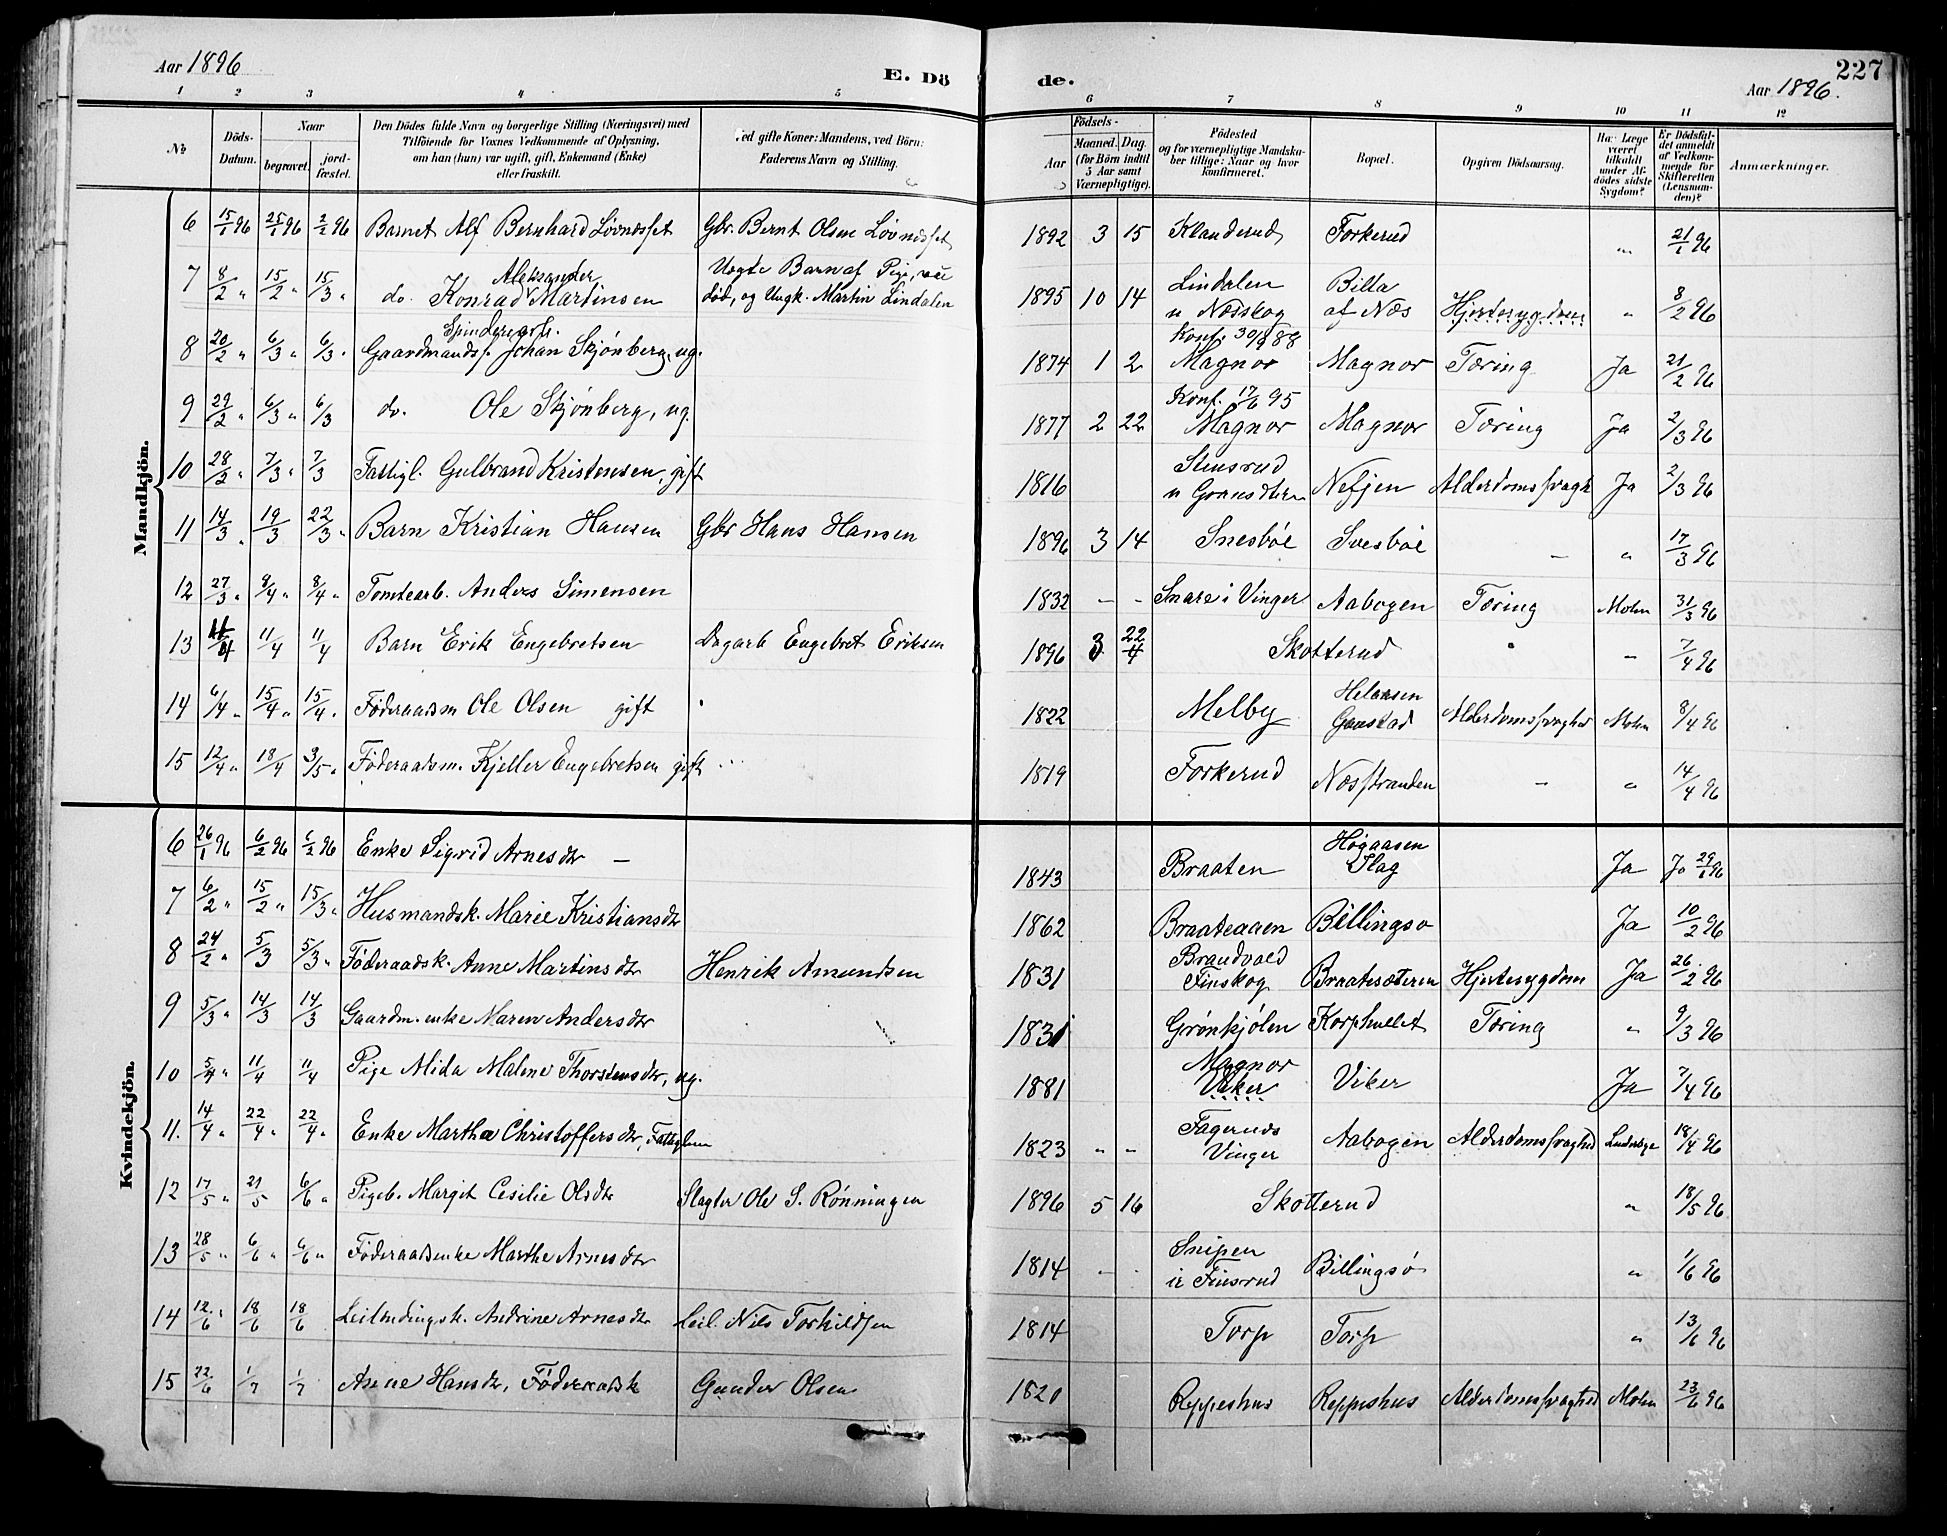 Aar 1896
E. Dö
de.
227
Aar 1896.
1 2 3 4 5 6 7 8 9 10 11 12
No
Döds-
Datum.
Naar
begravet.
jord-
fæstet.
Den Dödes fulde Navn og borgerlige Stilling (Næringsvei) med
Tilföiende for Voxnes Vedkommende af Oplysning,
om han (hun) var ugift, gift, Enkemand (Enke)
eller fraskilt.
ed gifte Koner: Mandens, ved Börn:
Faderens Navn og Stilling.
Födsels-
Aar
Maaned. Dag.
(for Börn indtil
5 Aar samt
Værnepligtige).
Födested
og for værnepligtige Mandska-
ber tillige: Naar og hvor
konfirmeret.
Bopæl.
Opgiven Dödsaarsag.
Har Læge
været
tilkaldt
under Af-
dödes sidste
Sygdom?
Er Dödsfal-
det anmeldt
af Vedkom-
mende for
Skifteretten
(Lensman-
den)?
Anmærkninger.
Mandkjön.
6 15/1 96 25/1 96 2/2 96 Barnet Alf Bernhard Løvnæsset Gbr. Bernt Olsen Løvnæsset 1892 3 15 Klanderud Forkerud " 21/1 96
Aleksander Uægte Barn af Pige,
7 8/2 " 15/2 " 15/3 " do. Konrad Martinsen død, og Ungk. Martin Lindalen 1895 10 14 Lindalen Billa
u Næsskog af Næs Hjertesygdom " 8/2 96
Konf. 30/9 88
8 20/2 " 6/3 " 6/3 " Gaardmands. Johan Skjønberg, ug. 1874 1 2 Magnor Magnor Tæring Ja 21/2 96
Konf. 17/6 95
9 29/2 " 6/3 " 6/3 do. Ole Skjønberg, ug. 1877 2 22 Magnor Magnor Tæring Ja 2/3 96
10 28/2 " 7/3 " 7/3 Fattigl. Gulbrand Kristensen, gift 1816 Stensrud
Nefjen Alderdomssvagh Ja 2/3 96
11 14/3 " 19/3 22/3 " Barn Kristian Hansen Gbr Hans Hansen 1896 3 14 Snesbøe Snesbøe — " 17/3 96
12 27/3 " 8/4 " 8/4 " Tomtearb. Anders Simensen 1832 - - Snare i Vinger Aabogen Tæring Molm 31/3 96
13 11/4 11/4 Barn Erik Engebretsen Dagarb Engebret Eriksen 1896 3 22/4 Skotterud " — 7/4 96
14 6/4 " 15/4 " 15/4 " Føderaadsm Ole Olsen gift 1822 Melby
Gaustad Alderdomssvaghed Molm 8/4 96
15 12/4 " 18/4 3/5 " Føderaadsm. Kjeller Engebretsen gift 1819 Forkerud Næsstranden — " 14/4 96
Kvindekjön.
6 26/1 96 6/2 96 6/2 96 Enke Sigrid Arnesdtr — 1843 Braaten Høgaasen
Slag Ja Ja 29/1 96
7 6/2 " 15/2 " 15/3 " Husmandsk. Marie Kristiansdtr 1862 Braateaaen Billingsø Ja 10/2 96
8 24/2 " 5/3 5/3 " Føderaadsk. Anne Martinsdtr Henrik Amundsen 1831 Brandvold
Finskog Braatesæteren Hjertesygdom Ja 26/2 96
9 5/3 " 14/3 14/3 Gaardm.enke Maren Andersdtr 1831 Grønkjølen Korphullet Tæring " 9/3 96
10 5/4 " 11/4 11/4 Pige Alida Malene Thorstensdtr, ug. 1881 Magnor
Viker Viker Ja 7/4 96
11. 14/4 " 22/4 " 22/4 " Enke Marthe Christoffersdtr, Fattiglem 1823 " " Fagernæs
Vinger Aabogen Alderdomssvaghed 18/4 96
12 17/5 " 21/5 6/6 " Pigeb. Margit Cesilie Olsdtr Slagter Ole S. Rønningen 1896 5 16 Skotterud " 18/5 96
13 28/5 " 6/6 " 6/6 " Føderaadsenke Marthe Arnesdtr 1814 - - Snipen
Finsrud Billingsø " 1/6 96
14 12/6 " 18/6 18/6 Leilendingsk. Andrine Arnesdtr Leil. Nils Torkildsen 1814 Torp Torp " 13/6 96
15 22/6 1/7 1/7 Anne Hansdtr, Føderaadsk Gunder Olsen 1820 Reppeshus Reppeshus Alderdomssvaghed Molm 23/6 96